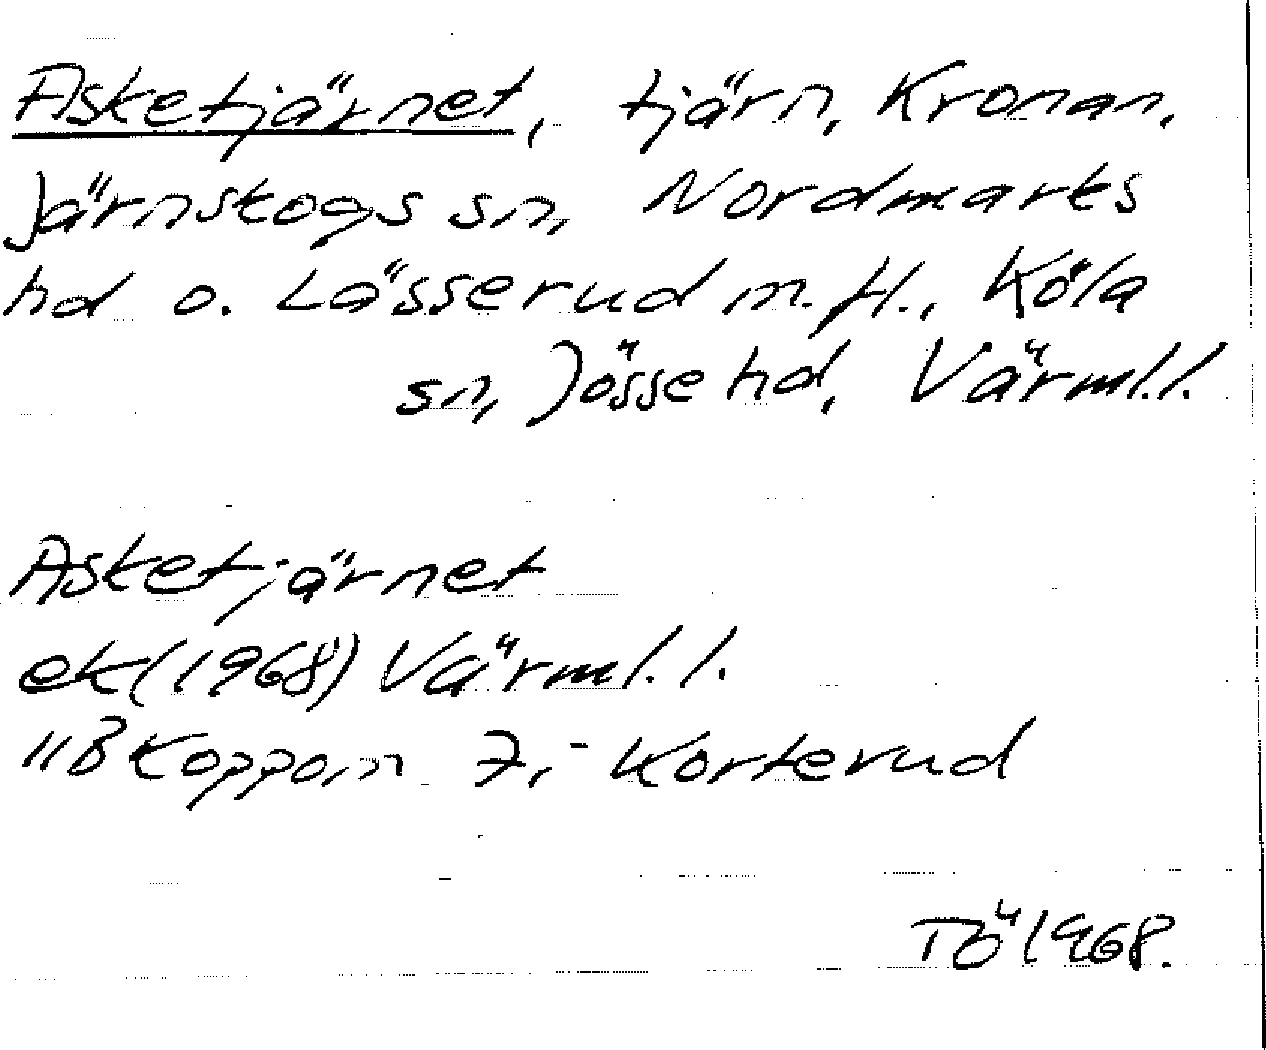 Asketjärnet, tjärn, Kronan,
Järnskogs sn, Nordmarks
hd o. Lässerud m.fl., Köla
sn, Jösse hd, Värml.l.
Asketjärnet
ek (1968) Värml.l.
11B Koppom 7i Korterud
TÖ 1968.